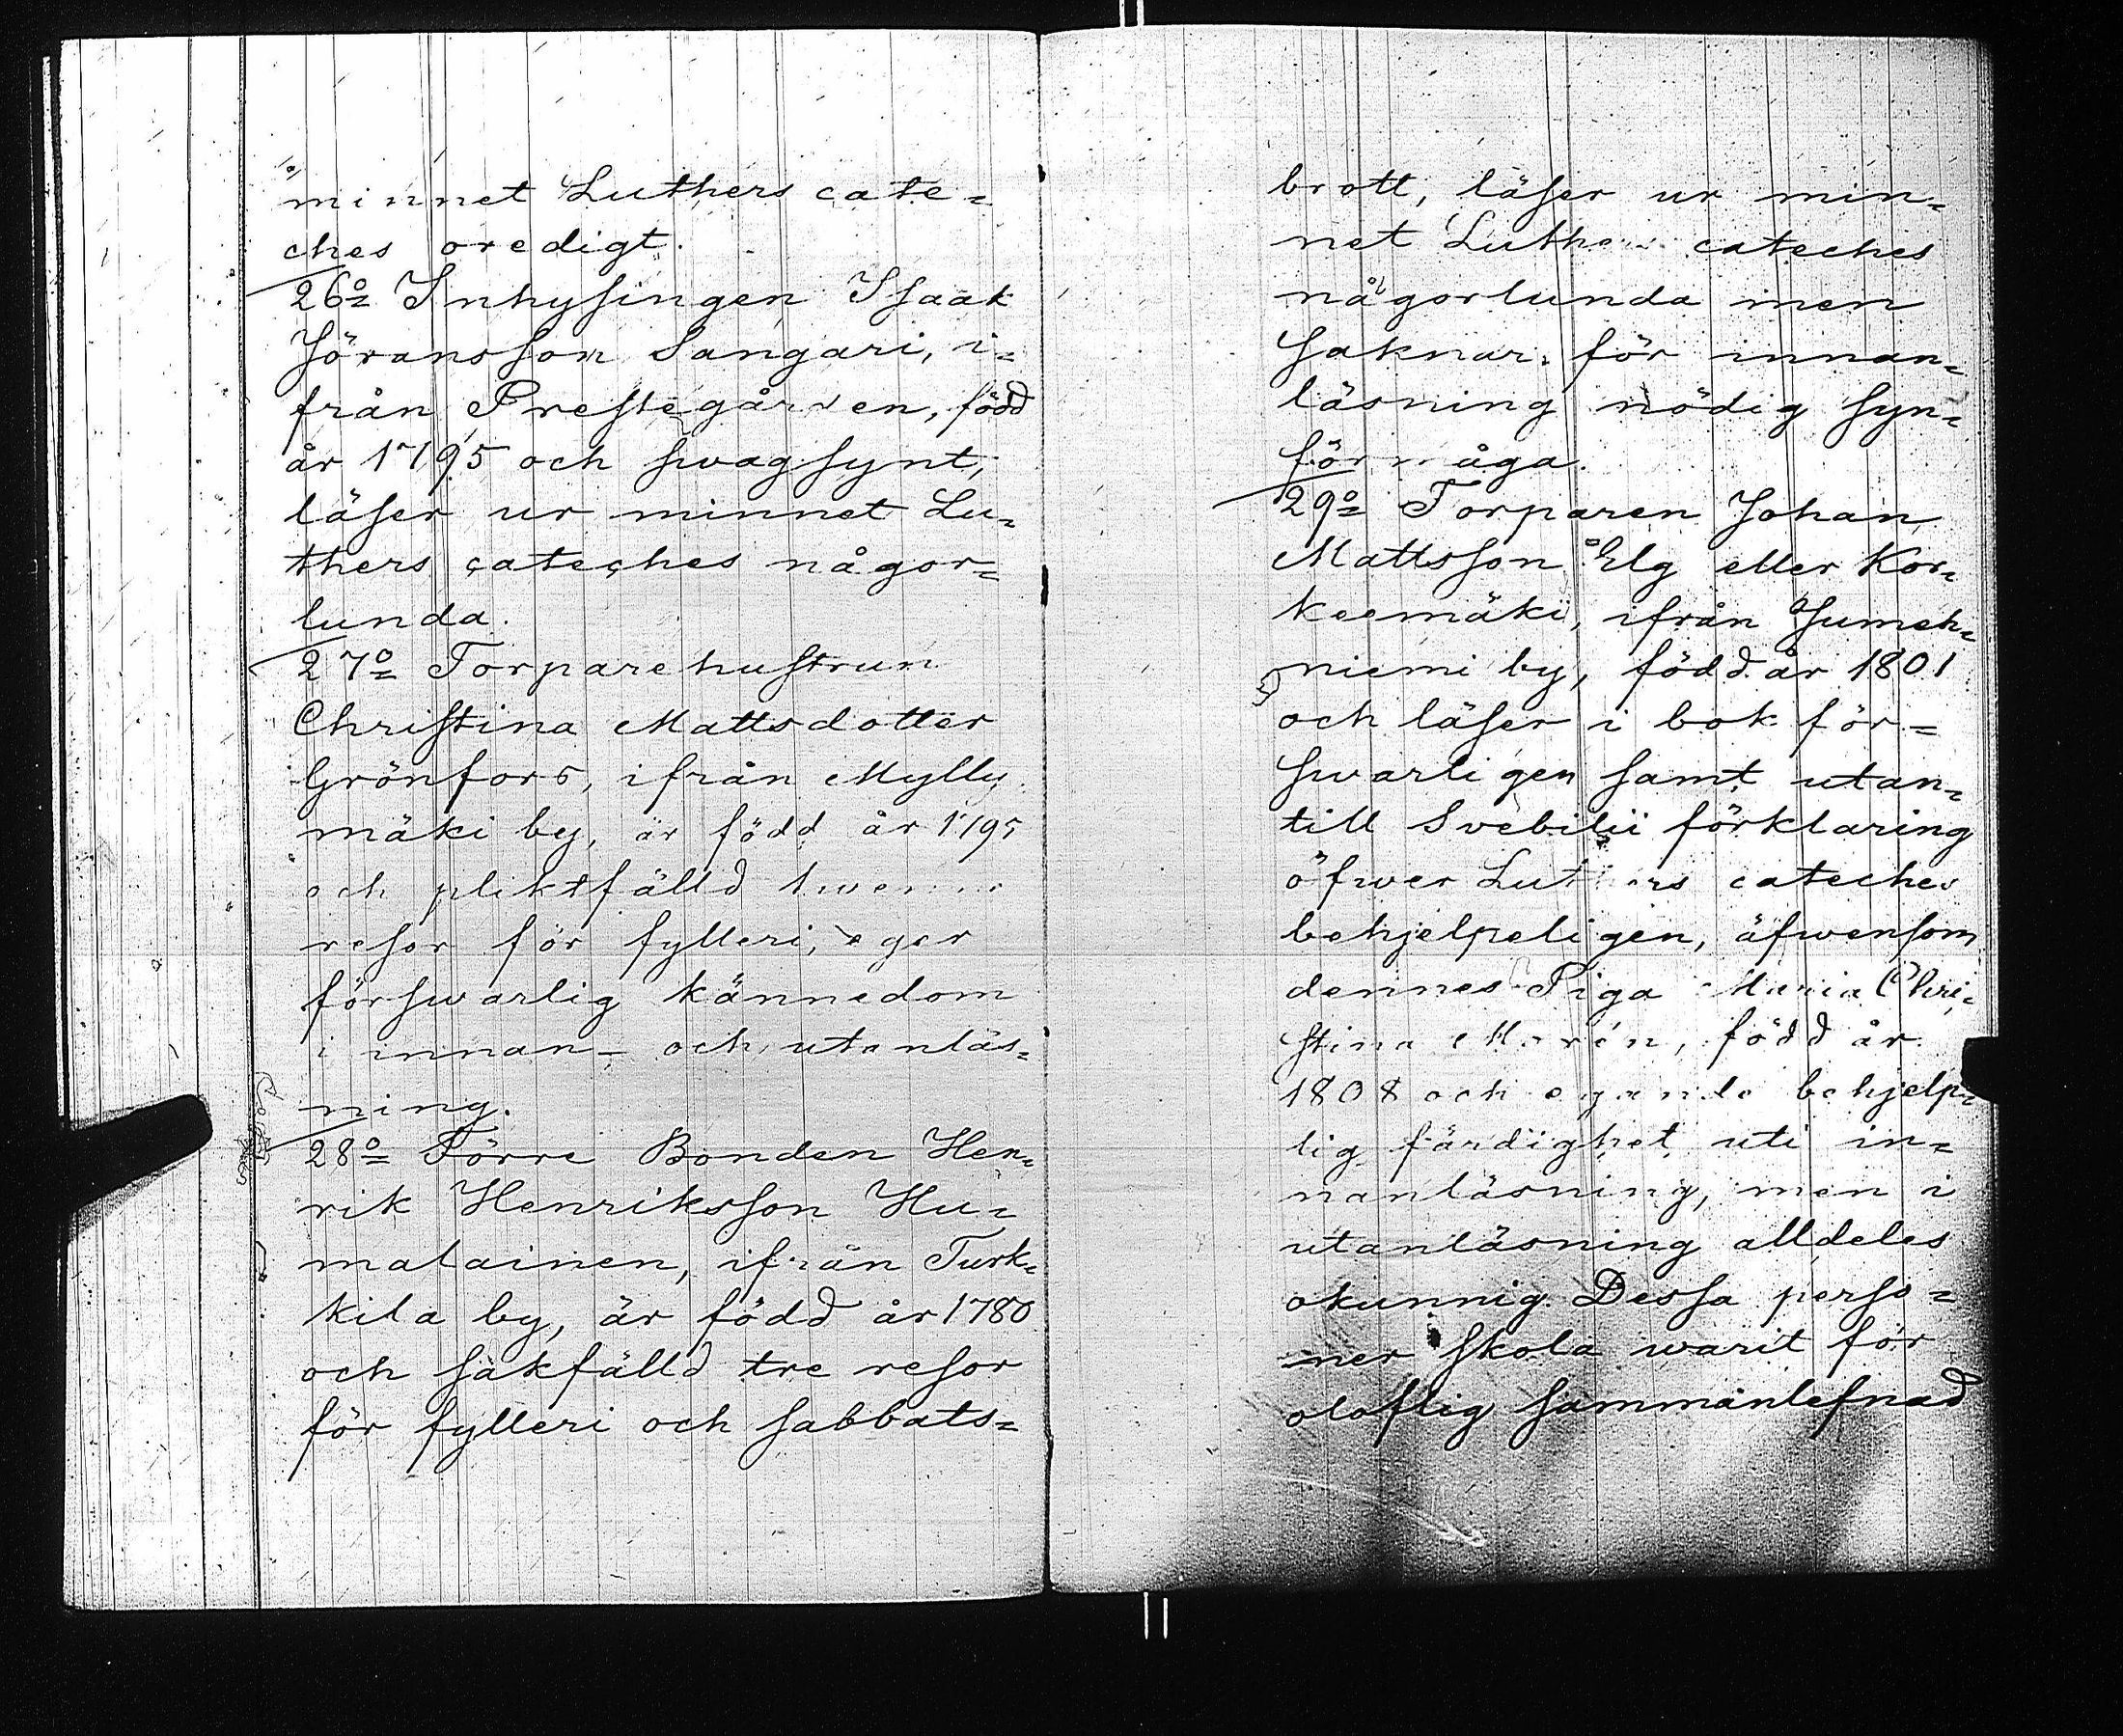 minnet Luthers cate=
ches oredigt.
26o Inhysingen Isaak
Jöransson Sangari, i=
från Prestegården, född
år 1795 och swagsynt,
läser ur minnet Lu=
thers cateches någor=
lunda.
27o Torparehustrun
Christina Mattsdotter
Grönfors, ifrån Mylly=
mäki by, är född år 1795
och pliktfälld
resor för fylleri, eger
förswarlig kännedom
i innan- och utanläs=
ning.
28o Förre Bonden Hen=
rik Henriksson Hu=
malainen, ifrån Turk=
kila by, är född år 1780
och sakfälld tre resor
för fylleri och sabbats=
brott, läser ur min=
net Luthers cateches
någorlunda men
saknar för innan=
läsning nödig syn=
förmåga.
29o Torparen Johan
Mattsson Elg eller Kor=
keemäki, ifrån Jumeh=
niemi by, född år 1801
och läser i bok för=
swarligen samt utan=
till Svebilii förklaring
öfwer Luthers cateches
behjelpeligen, äfwensom
dennes Piga Maria Chri=
stina Morén, född år
1808 och egande behjelp=
lig färdighet uti in=
nanläsning, men i
utanläsning alldeles
okunnig. Dessa perso=
ner skola warit för
oloflig sammanlefnad